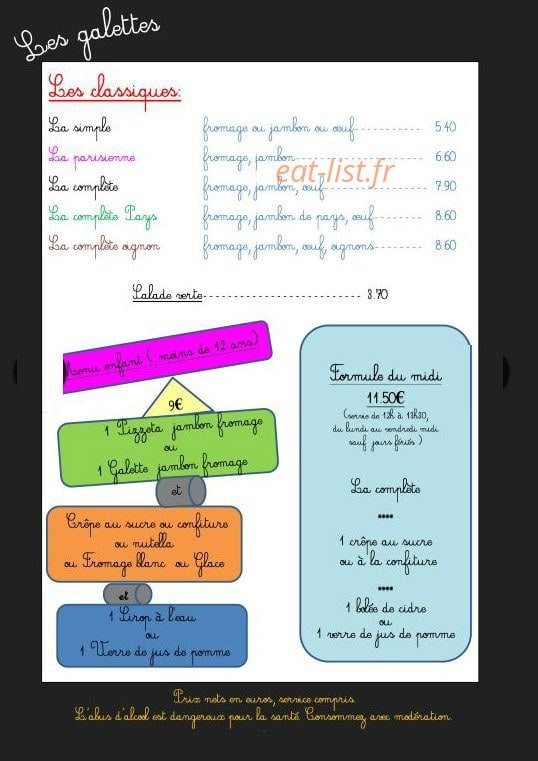 Les galettes
Les classiques:
La simple fromage ou jambon ou œuf 5.40
La parisienne fromage, jambon 6.60
La complète fromage, jambon, œuf 7.90
La complète Pays fromage, jambon de pays, œuf 8.60
La complète oignon fromage, jambon, œuf, oignons 8.60
eat-list.fr
Salade verte 3.70
Menu enfant ( moins de 12 ans)
9€
1 Pizzeta jambon fromage
ou
1 Galette jambon fromage
et
Crêpe au sucre ou confiture
ou nutella
ou Fromage blanc ou Glace
et
1 Sirop à l'eau
ou
1 Verre de jus de pomme
Formule du midi
11.50€
(servie de 12h à 13h30,
du lundi au vendredi midi
sauf jours fériés )
La complète
****
1 crêpe au sucre
ou à la confiture
****
1 bolée de cidre
ou
1 verre de jus de pomme
Prix nets en euros, service compris
L'abus d'alcool est dangereux pour la santé. Consommez avec modération.